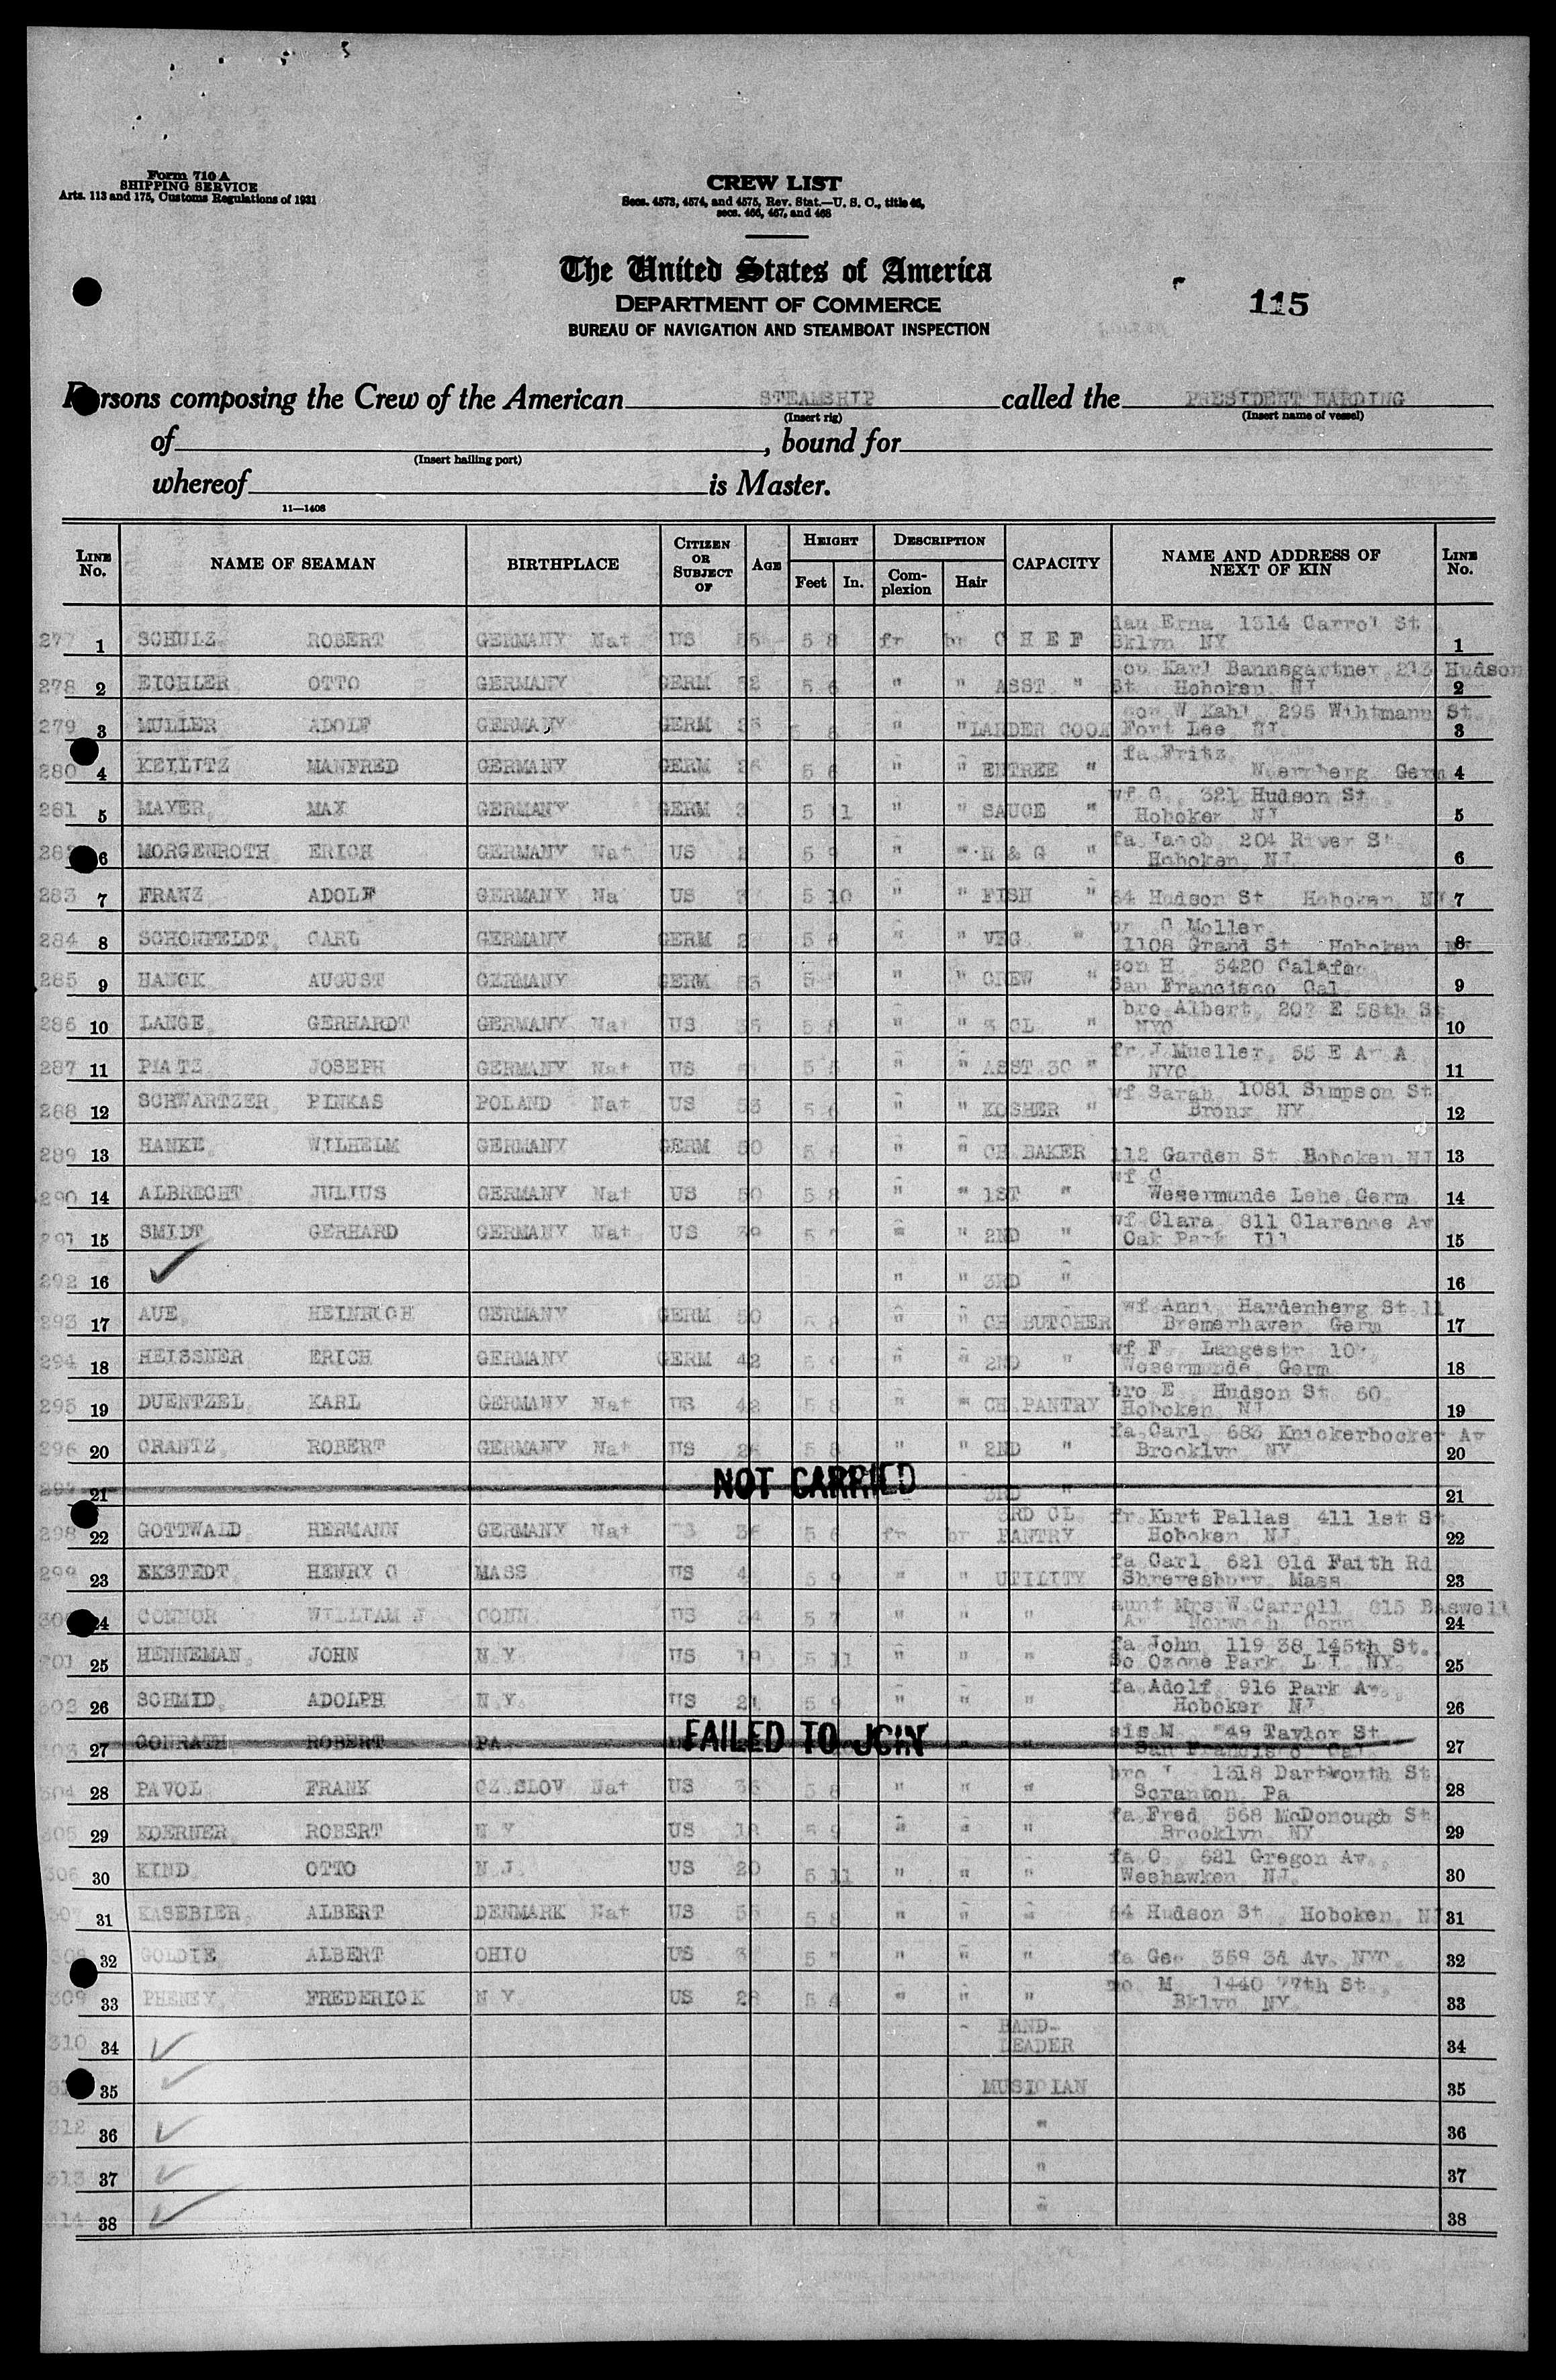 Form 710 A
SHIPPING SERVICE
Arts. 113 and 175, Customs Regulations of 1931
CREW LIST
Secs. 4573, 4574, and 4575, Rev. Stat.—U. S. C., title 46,
secs. 466, 467, and 468
The United States of America
DEPARTMENT OF COMMERCE
BUREAU OF NAVIGATION AND STEAMBOAT INSPECTION
115
Persons composing the Crew of the American STEAMSHIP called the PRESIDENT HARDING
(Insert rig) (Insert name of vessel)
of , bound for
(Insert hailing port)
whereof is Master.
11—1408
LINE No. NAME OF SEAMAN BIRTHPLACE CITIZEN OR SUBJECT OF AGE HEIGHT Feet In. DESCRIPTION Complexion Hair CAPACITY NAME AND ADDRESS OF NEXT OF KIN LINE No.
277 1 SCHULZ, ROBERT GERMANY Nat US 5 8 fr br C H E F dau Erna 1314 Carrol St 1
Bklyn NY
278 2 EICHLER, OTTO GERMANY GERM 52 5 6 " " ASST. " Karl Bannsgartner, 213 Hudson 2
St Hoboken NJ
279 3 MULLER, ADOLF GERMANY GERM 5 8 " " LARDER COOK W Kahl 295 Wihtmann St 3
Fort Lee, NJ
280 4 KEILITZ MANFRED GERMANY GERM 26 5 6 " " ENTREE " fa Fritz, 4
Nuernberg Germ
281 5 MAYER, MAX GERMANY GERM 5 11 " " SAUCE " wf C. 321 Hudson St 5
Hoboken NJ
6 MORGENROTH ERICH GERMANY Nat US 5 9 " " R & G " fa Jacob 204 River St 6
Hoboken NJ
283 7 FRANZ, ADOLF GERMANY Na US 5 10 " " FISH " 64 Hudson St Hoboken, NJ 7
284 8 SCHONFELDT, CARL GERMANY GERM 5 8 " " VEG. " G Moller, 8
1108 Grand St Hoboken NJ
285 9 HANCK AUGUST GERMANY GERM 5 " " CREW " son H 5420 9
San Francisco Cal
286 10 LANGE, GERHARDT GERMANY Nat US 5 8 " " 3 CL " bro Albert, 207 E 58th St 10
NYC
287 11 PIATZ JOSEPH GERMANY Nat US 5 5 " " ASST 3C " fr J Mueller, 55 E Av A 11
NYC
288 12 SCHWARTZER PINKAS POLAND Nat US 53 5 6 " " KOSHER " wf Sarah, 1081 Simpson St 12
Bronx NY
289 13 HANKE, WILHELM GERMANY GERM 50 5 6 " " CH BAKER 112 Garden St Hoboken NJ 13
290 14 ALBRECHT JULIUS GERMANY Nat US 50 5 8 " " 1ST " wf C 14
Wesermunde Lehe Germ
291 15 SMIDT GERHARD GERMANY Nat US 39 5 7 " " 2ND " wf Clara, 811 Clarence Av 15
Oak Park Ill
292 16 " " 3RD " 16
293 17 AUE, HEINRICH GERMANY GERM 50 5 8 " " CH BUTCHER wf Anni Hardenberg St 11 17
Bremerhaven Germ
294 18 HEISSNER ERICH GERMANY GERM 42 5 9 " " 2ND " wf F Langestr 18
Wesermunde Germ
295 19 DUENTZEL KARL GERMANY Nat US 42 5 8 " " CH PANTRY bro E, Hudson St 60 19
Hoboken NJ
296 20 CRANTZ, ROBERT GERMANY Nat US 5 8 " " 2ND " fa Carl, 683 Knickerbocker Av 20
Brooklyn NY
297 21 NOT CARRIED 3RD " 21
298 22 GOTTWALD HERMANN GERMANY Nat US 36 5 6 fr br 3RD CL PANTRY fr Kurt Pallas 411 1st St 22
Hoboken NJ
299 23 EKSTEDT, HENRY C MASS US 5 9 " " UTILITY fa Carl 621 Old Faith Rd 23
Shrewsbury Mass
24 CONNOR WILLIAM J CONN US 34 5 7 " " " aunt Mrs W Carroll 615 Baswell 24
Av Norwich Conn
301 25 HENNEMAN, JOHN N.Y. US 19 5 11 " " " fa John 119 38 145th St. 25
So Ozone Park L I NY
302 26 SCHMID, ADOLPH N.Y. US 21 5 9 " " " fa Adolf 916 Park Av. 26
Hoboken NJ
303 27 CONRATH ROBERT PA FAILED TO JOIN " " sis M 49 Taylor St 27
San Francisco Cal
304 28 PAVOL FRANK CZ.SLOV Nat US 36 5 8 " " " bro 1318 Dartmouth St 28
Scranton Pa
305 29 KOERNER ROBERT N Y US 5 9 " " " fa Fred 568 McDonough St 29
Brooklyn NY
306 30 KIND OTTO N J US 20 5 11 " " " fa O. 621 Gregon Av. 30
Weehawken NJ
307 31 KASEBIER, ALBERT DENMARK Nat US 5 8 " " " 64 Hudson St Hoboken, NJ 31
308 32 GOLDIE ALBERT OHIO US 5 7 " " " fa Geo 359 3d Av. NYC 32
309 33 PHENEY, FREDERICK N Y US 28 5 4 " " " mo M 1440 77th St. 33
Bklyn NY
310 34 BAND-LEADER 34
35 MUSICIAN 35
312 36 " 36
313 37 " 37
314 38 " 38